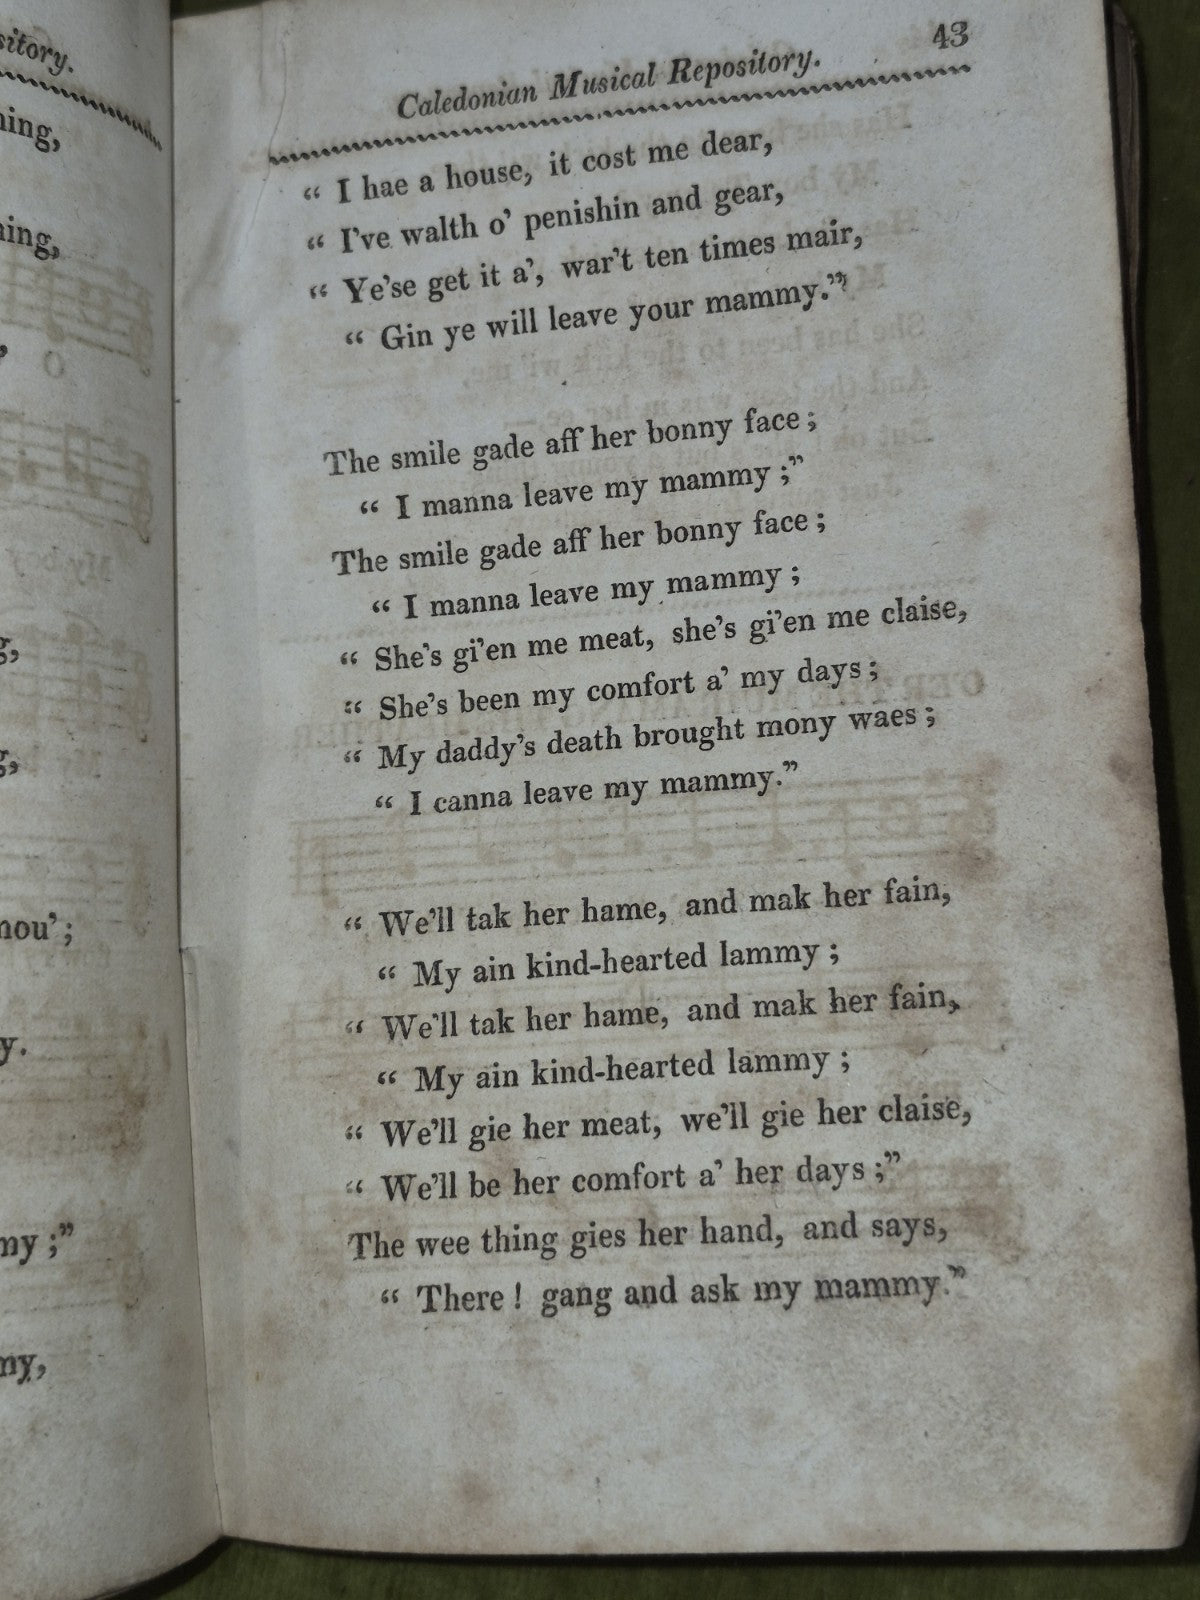 sitory.
ning,
ning,
nou';
y.
my;"
my,
Caledonian Musical Repository. 43
" I hae a house, it cost me dear,
" I've walth o' penishin and gear,
" Ye'se get it a', war't ten times mair,
" Gin ye will leave your mammy."
The smile gade aff her bonny face;
" I manna leave my mammy;"
The smile gade aff her bonny face;
" I manna leave my mammy;
" She's gi'en me meat, she's gi'en me claise,
" She's been my comfort a' my days;
" My daddy's death brought mony waes;
" I canna leave my mammy."
" We'll tak her hame, and mak her fain,
" My ain kind-hearted lammy;
" We'll tak her hame, and mak her fain,
" My ain kind-hearted lammy;
" We'll gie her meat, we'll gie her claise,
" We'll be her comfort a' her days;"
The wee thing gies her hand, and says,
" There! gang and ask my mammy."